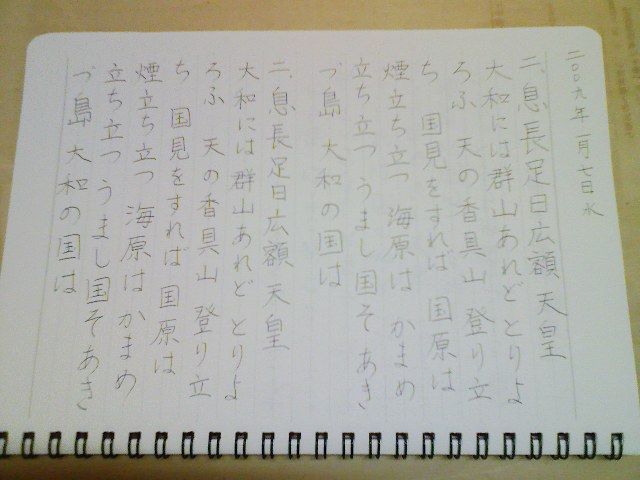 二〇〇九年一月七日水
二、息長足日広額天皇
大和には群山あれど とりよ
ろふ 天の香具山 登り立
ち 国見をすれば 国原は
煙立ち立つ 海原は かまめ
立ち立つ うまし国そ あき
づ島 大和の国は
二、息長足日広額天皇
大和には群山あれど とりよ
ろふ 天の香具山 登り立
ち 国見をすれば 国原は
煙立ち立つ 海原は かまめ
立ち立つ うまし国そ あき
づ島 大和の国は